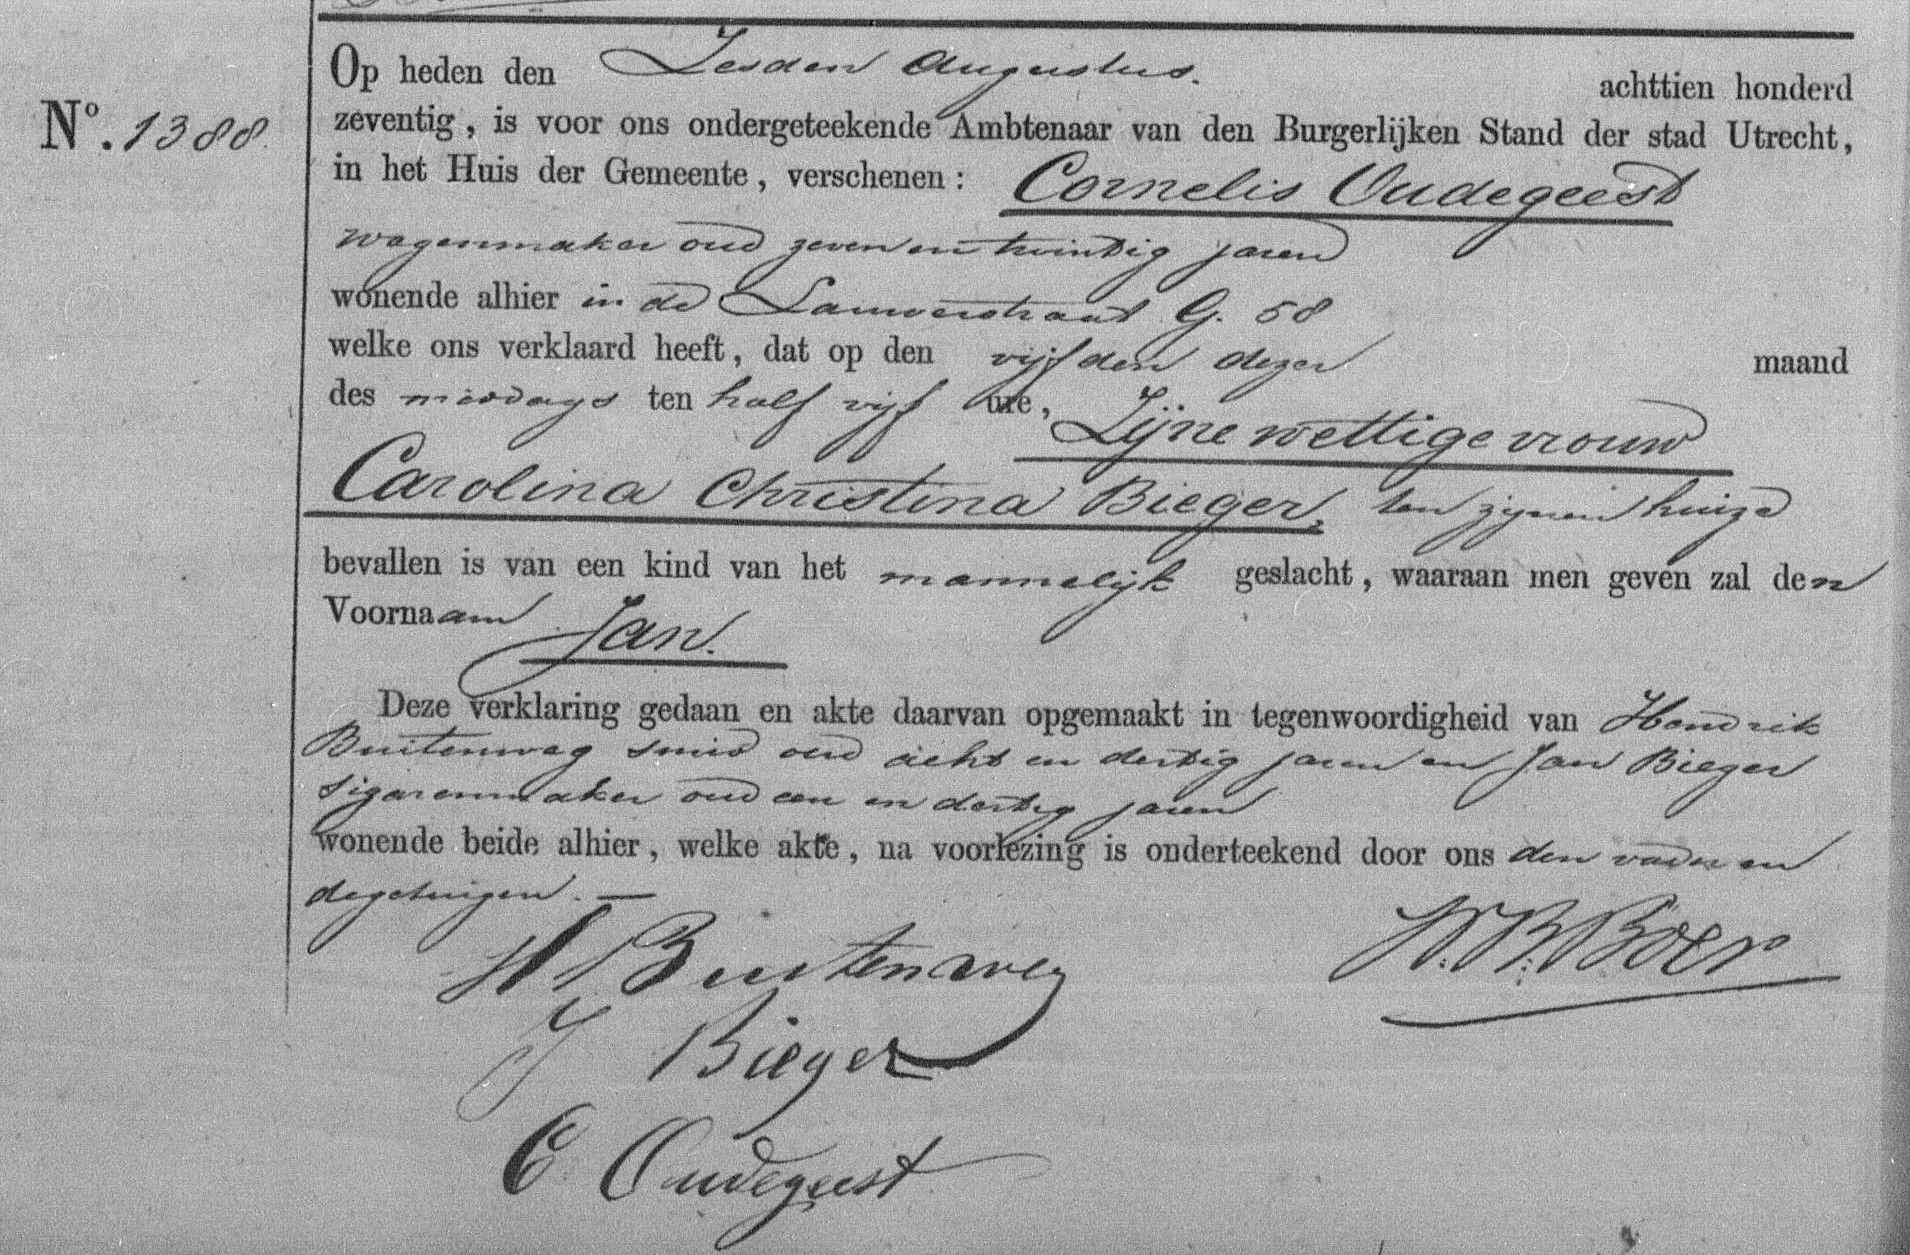 Op heden den Zesden Augustus. achttien honderd
No. 1388. zeventig, is voor ons ondergeteekende Ambtenaar van den Burgerlijken Stand der stad Utrecht,
in het Huis der Gemeente, verschenen: Cornelis Oudegeest
wagenmaker oud zeven en twintig jaren
wonende alhier in de Lauwerstraat G. 58
welke ons verklaard heeft, dat op den vijfden dezer maand
des middags ten half vijf ure, Zijne wettige vrouw
Carolina Christina Bieger, ten zijnen huize
bevallen is van een kind van het mannelijk geslacht, waaraan men geven zal den
Voornaam Jan.
Deze verklaring gedaan en akte daarvan opgemaakt in tegenwoordigheid van Hendrik
Buitenweg smid oud acht en dertig jaren en Jan Bieger
sigarenmaker oud een en dertig jaren
wonende beide alhier, welke akte, na voorlezing is onderteekend door ons den vader en
de getuigen. —
H Buitenweg W. B. Boer
J Bieger
C Oudegeest